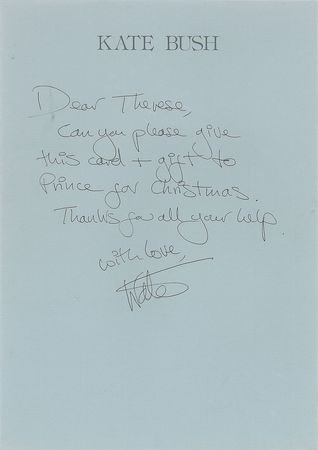 KATE BUSH
Dear Therese,
Can you please give
this card + gift to
Prince for Christmas.
Thanks for all your help.
with love,
Kate